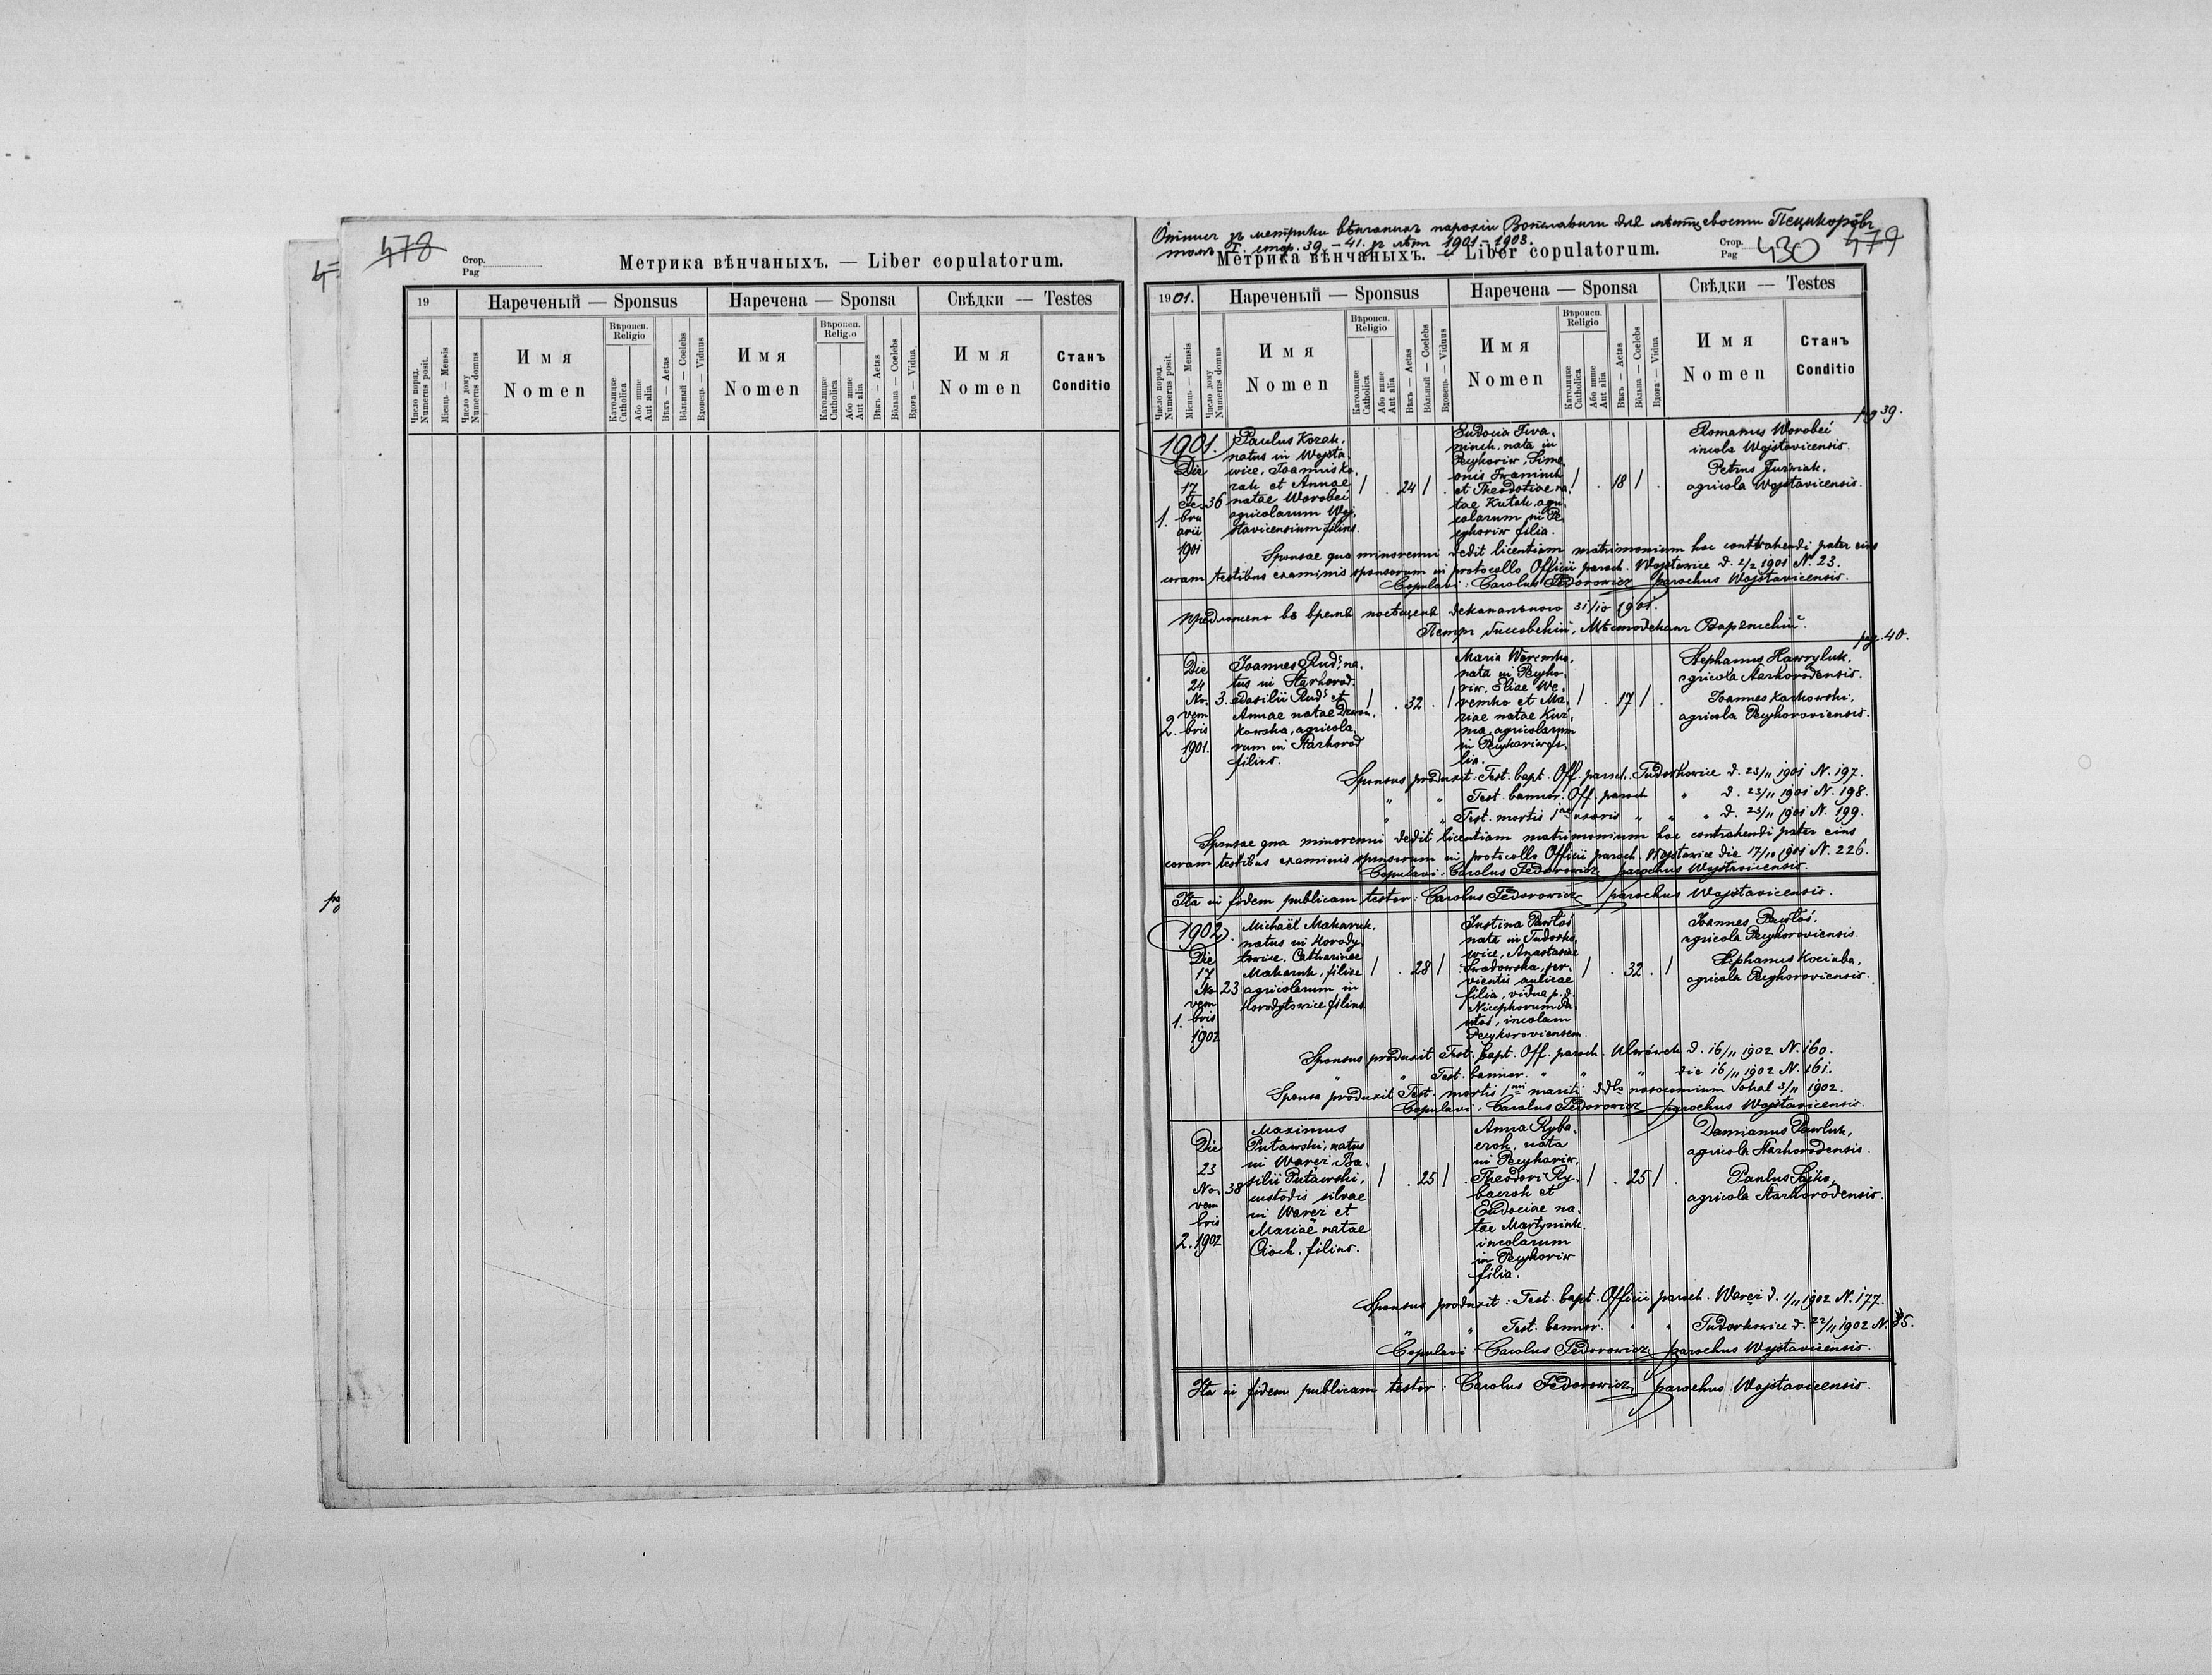 478
Стор.
Pag
Метрика вѣнчаныхъ. — Liber copulatorum.
19
Нареченый — Sponsus
Наречена — Sponsa
Свѣдки — Testes
Число поряд.
Numerus posit.
Мѣсяць — Mensis
Число дому
Numerus domus
Имя
Nomen
Вѣроисп.
Religio
Католицке
Catholica
Або инше
Aut alia
Вѣкъ — Aetas
Вôльный — Coelebs
Вдовець — Viduus
Имя
Nomen
Вѣроисп.
Religio
Католицке
Catholica
Або инше
Aut alia
Вѣкъ — Aetas
Вôльна — Coelebs
Вдова — Vidua
Имя
Nomen
Станъ
Conditio
томъ I. стор. 39.–41. зъ лѣтъ 1901–1903.
Метрика вѣнчаныхъ. — Liber copulatorum.
Стор.
Pag
430
479
1901.
Нареченый — Sponsus
Наречена — Sponsa
Свѣдки — Testes
Число поряд.
Numerus posit.
Мѣсяць — Mensis
Число дому
Numerus domus
Имя
Nomen
Вѣроисп.
Religio
Католицке
Catholica
Або инше
Aut alia
Вѣкъ — Aetas
Вôльный — Coelebs
Вдовець — Viduus
Имя
Nomen
Вѣроисп.
Religio
Католицке
Catholica
Або инше
Aut alia
Вѣкъ — Aetas
Вôльна — Coelebs
Вдова — Vidua
Имя
Nomen
Станъ
Conditio
pag 39.
1901.
1.
Die
17
Fe-
bru
arii
1901
36
Paulus Kozak,
natus in Wojsła-
wice, Joannis Ko-
zak et Annae
natae Worobei
agricolarum Woj-
slavicensium filius.
/ . 24 / .
Eudocia Iwa-
ninch, nata in
Pecyhoriw, Sime-
onis Iwaninch
et Theodotiae na-
tae Kutak, agri-
colarum in Pe-
cyhoriw filia.
/ . 18 / .
Romanus Worobei
incola Wojslavicensis.
Petrus Juzwiak,
agricola Wojslavicensis.
Sponsae qua minorenni dedit licentiam matrimonium hoc contrahendi pater eius
coram testibus examinis sponsorum in protocollo Officii paroch. Wojsławice d. 2/2 1901 N. 23.
Copulavi: Carolus Fedorowicz parochus Wojslavicensis.
31/10 1901.
pag. 40.
2.
Die
24
No-
vem
bris
1901.
3.
Joannes Rudˇ, na-
tus in Starhorod.
Basilii Rudˇ et
Annae natae Dzwon-
kowska, agricola-
rum in Starhorod
filius.
/ . 32 . /
Maria Weremko,
nata in Pecyho-
riw, Eliae We-
remko et Ma-
riae natae Kuź-
ma, agricolarum
in Pecyhoriw fi-
lia.
/ . 17 / .
Stephanus Hawryluk,
agricola Starhorodensis.
Joannes Karkowski,
agricola Pecyhoroviensis.
Sponsus produxit: Test. bapt. Off. paroch. Tudorkowice d. 23/11 1901 N. 197.
" " Test. bannor. Off. paroch " d. 23/11 1901 N. 198.
" " Test. mortis 1ae uxoris " " " d. 23/11 1901 N. 199.
Sponsae qua minorenni dedit licentiam matrimonium hoc contrahendi pater eius
coram testibus examinis sponsorum in protocollo Officii paroch. Wojsławice die 17/10 1901 N. 226.
Copulavi: Carolus Fedorowicz parochus Wojslavicensis.
Ita in fidem publicam testor: Carolus Fedorowicz parochus Wojslavicensis.
1902.
1.
Die
17
No
vem
bris
1902
23
Michaël Makaruk,
natus in Horody-
łowice, Catharinae
Makaruk, filiae
agricolarum in
Horodyłowice filius.
/ . 28 /
Justina Pawłoś
nata in Tudorko-
wice, Anastasiae
Sradowska, ser-
vientis aulicae
filia, vidua p. d.
Nicephorum Pa-
włoś, incolam
Pecyhoroviensem.
/ . 32 . /
Joannes Pawłoś.
agricola Pecyhoroviensis.
Stephanus Kociuba,
agricola Pecyhoroviensis.
Sponsus produxit Test. bapt. Off. paroch. Ulwówek d. 16/11 1902 N. 160.
" " Test. bannor. " " " die 16/11 1902 N. 161.
Sponsa produxit Test. mortis 1mi mariti ddto nosocomium Sokal 3/11 1902.
Copulavi: Carolus Fedorowicz parochus Wojslavicensis.
2.
Die
23
No-
vem
bris
1902
38
Maximus
Putawski, natus
in Waręż, Ba-
silii Putawski,
custodis silvae
in Waręż et
Mariae natae
Cioch, filius.
/ . 25 /
Anna Ryba-
czok, nata
in Pecyhoriw,
Theodori Ry-
baczok et
Eudociae na-
tae Martyniuk
incolarum
in Pecyhoriw
filia.
/ . 25 / .
Damianus Pawluk,
agricola Starhorodensis.
Paulus Sajko,
agricola Starhorodensis.
Sponsus produxit: Test. bapt. Officii paroch. Waręż d. 1/11 1902 N. 177.
" " Test. bannor. " " Tudorkowice d. 22/11 1902 N. 85.
Copulavi: Carolus Fedorowicz parochus Wojslavicensis.
Ita in fidem publicam testor: Carolus Fedorowicz parochus Wojslavicensis.